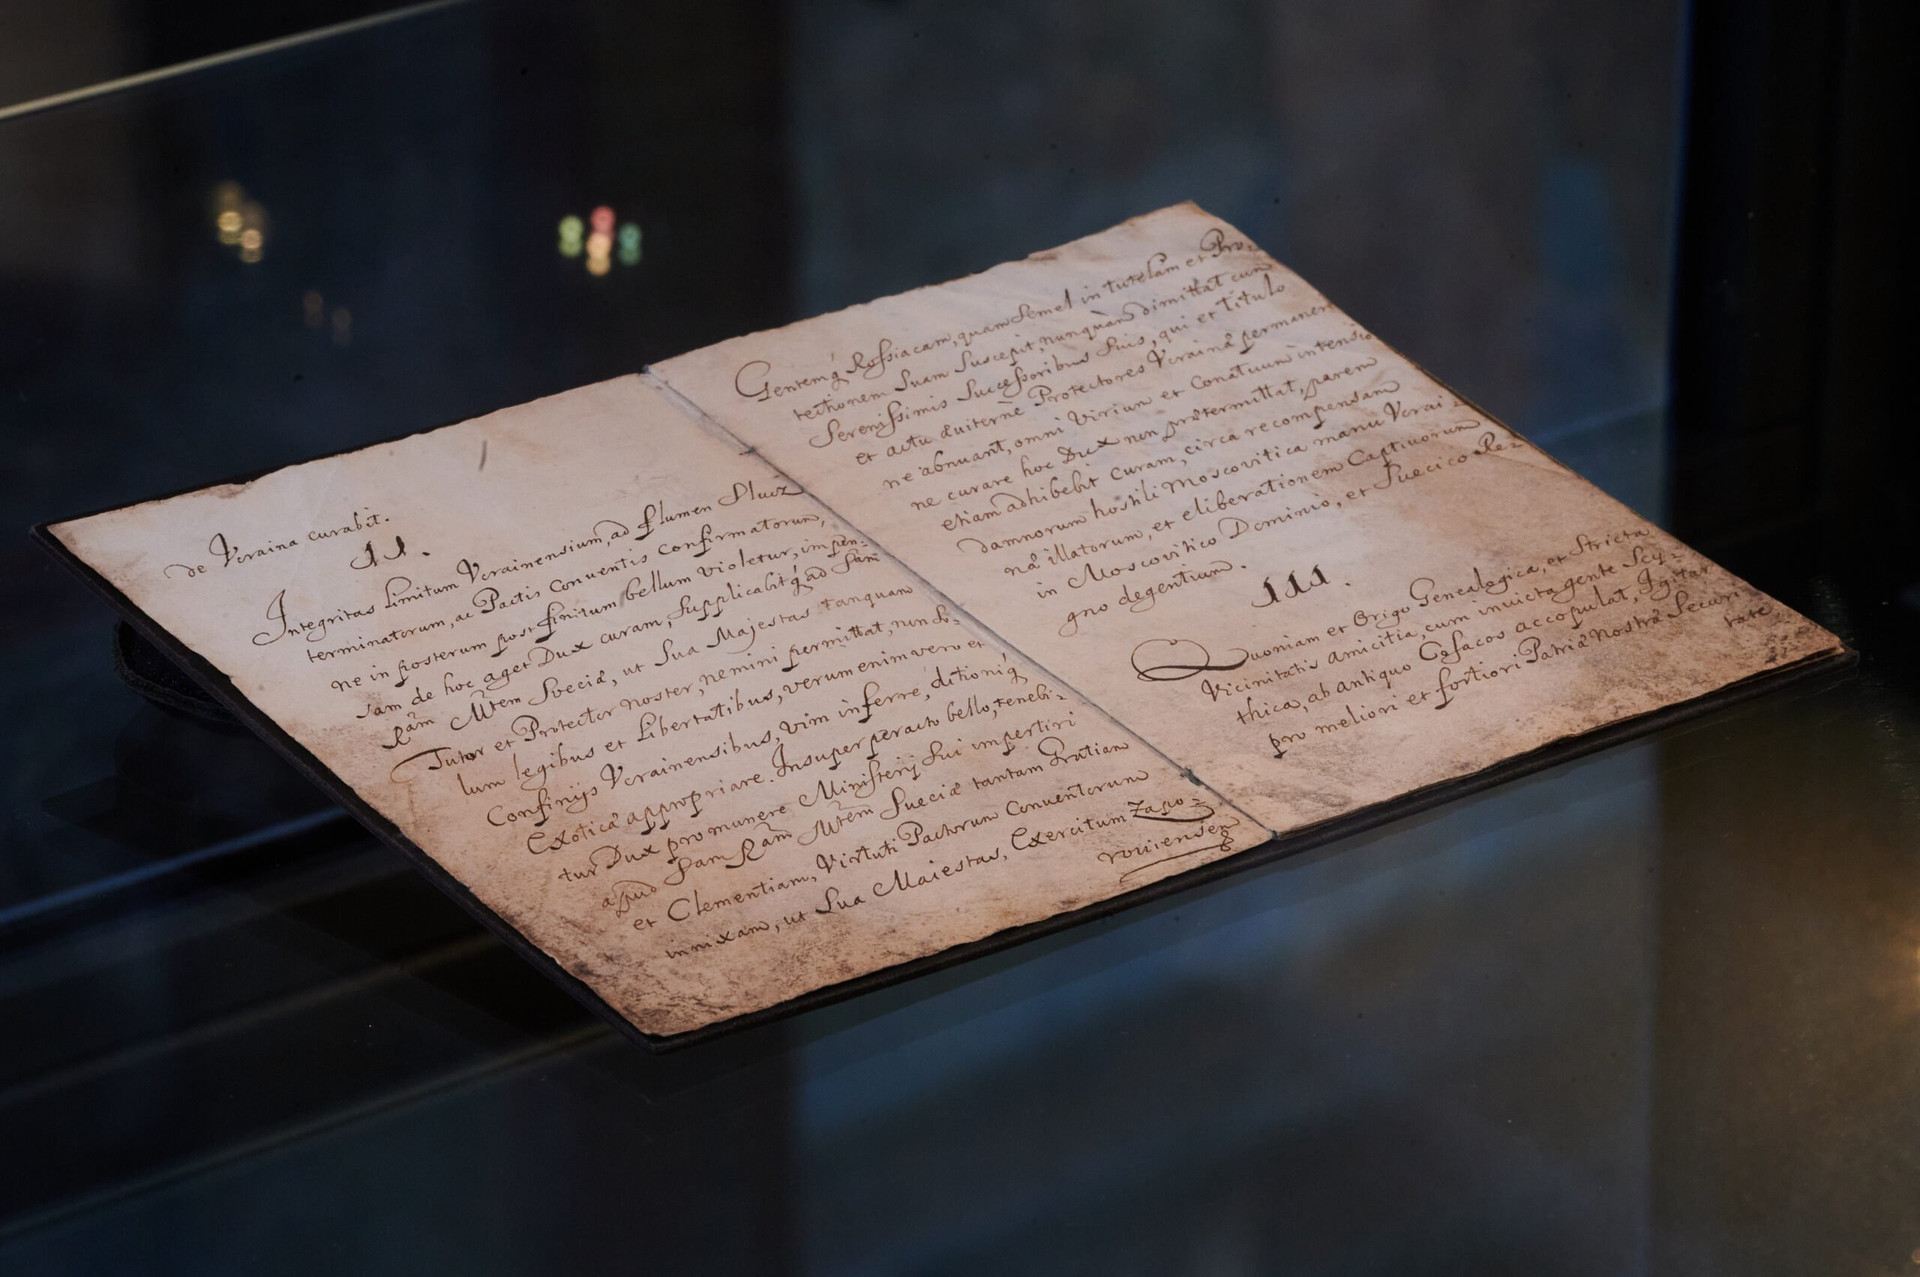 de Vcraina curabit.
II.
Integritas Limitum Vcrainensium, ad flumen Slucz
terminatorum, ac Pactis Conventis confirmatorum,
ne in posterum post finitum bellum violetur, impen-
sam de hoc aget Dux curam, supplicabitq; ad Sam
Ram Mtem Sveciæ, ut Sua Majestas tanquam
Tutor et Protector noster, nemini permittat, non so-
lum legibus et Libertatibus, verum enim vero et
Confinijs Vcrainensibus, vim inferre, ditioniq;
Exoticæ appropriare. Insuper peracto bello, tenebi-
tur Dux pro munere Ministerij sui impertiri
apud Sam Ram Mtem Sueciæ tantam Gratiam
et Clementiam, Virtuti Pactorum Conventorum
innixam, ut Sua Maiestas, Exercitum Zapo-
rouiensem
Gentemq; Rossiacam, quam semel in tutelam et Pro-
tectionem suam suscepit, nunquam dimittat cum
Serenissimis Successoribus suis, qui et titulo
et actu æuiternè Protectores Vcrainæ permanere
ne abnuant, omni virium et Conatuum intensio
ne curare hoc Dux non prætermittat, parem
etiam adhibebit curam, circa recompensam
damnorum hostili Moscovitica manu Vcrai-
næ illatorum, et eliberationem Captiuorum
in Moscovitico Dominio, et Suecico Re-
gno degentium.
III.
Quoniam et Origo Genealogica, et Stricta
Vicinitatis amicitia, cum invicta gente Scy-
thica, ab antiquo Cosacos accopulat, Igitur
pro meliori et fortiori Patriæ nostræ Securi
tate